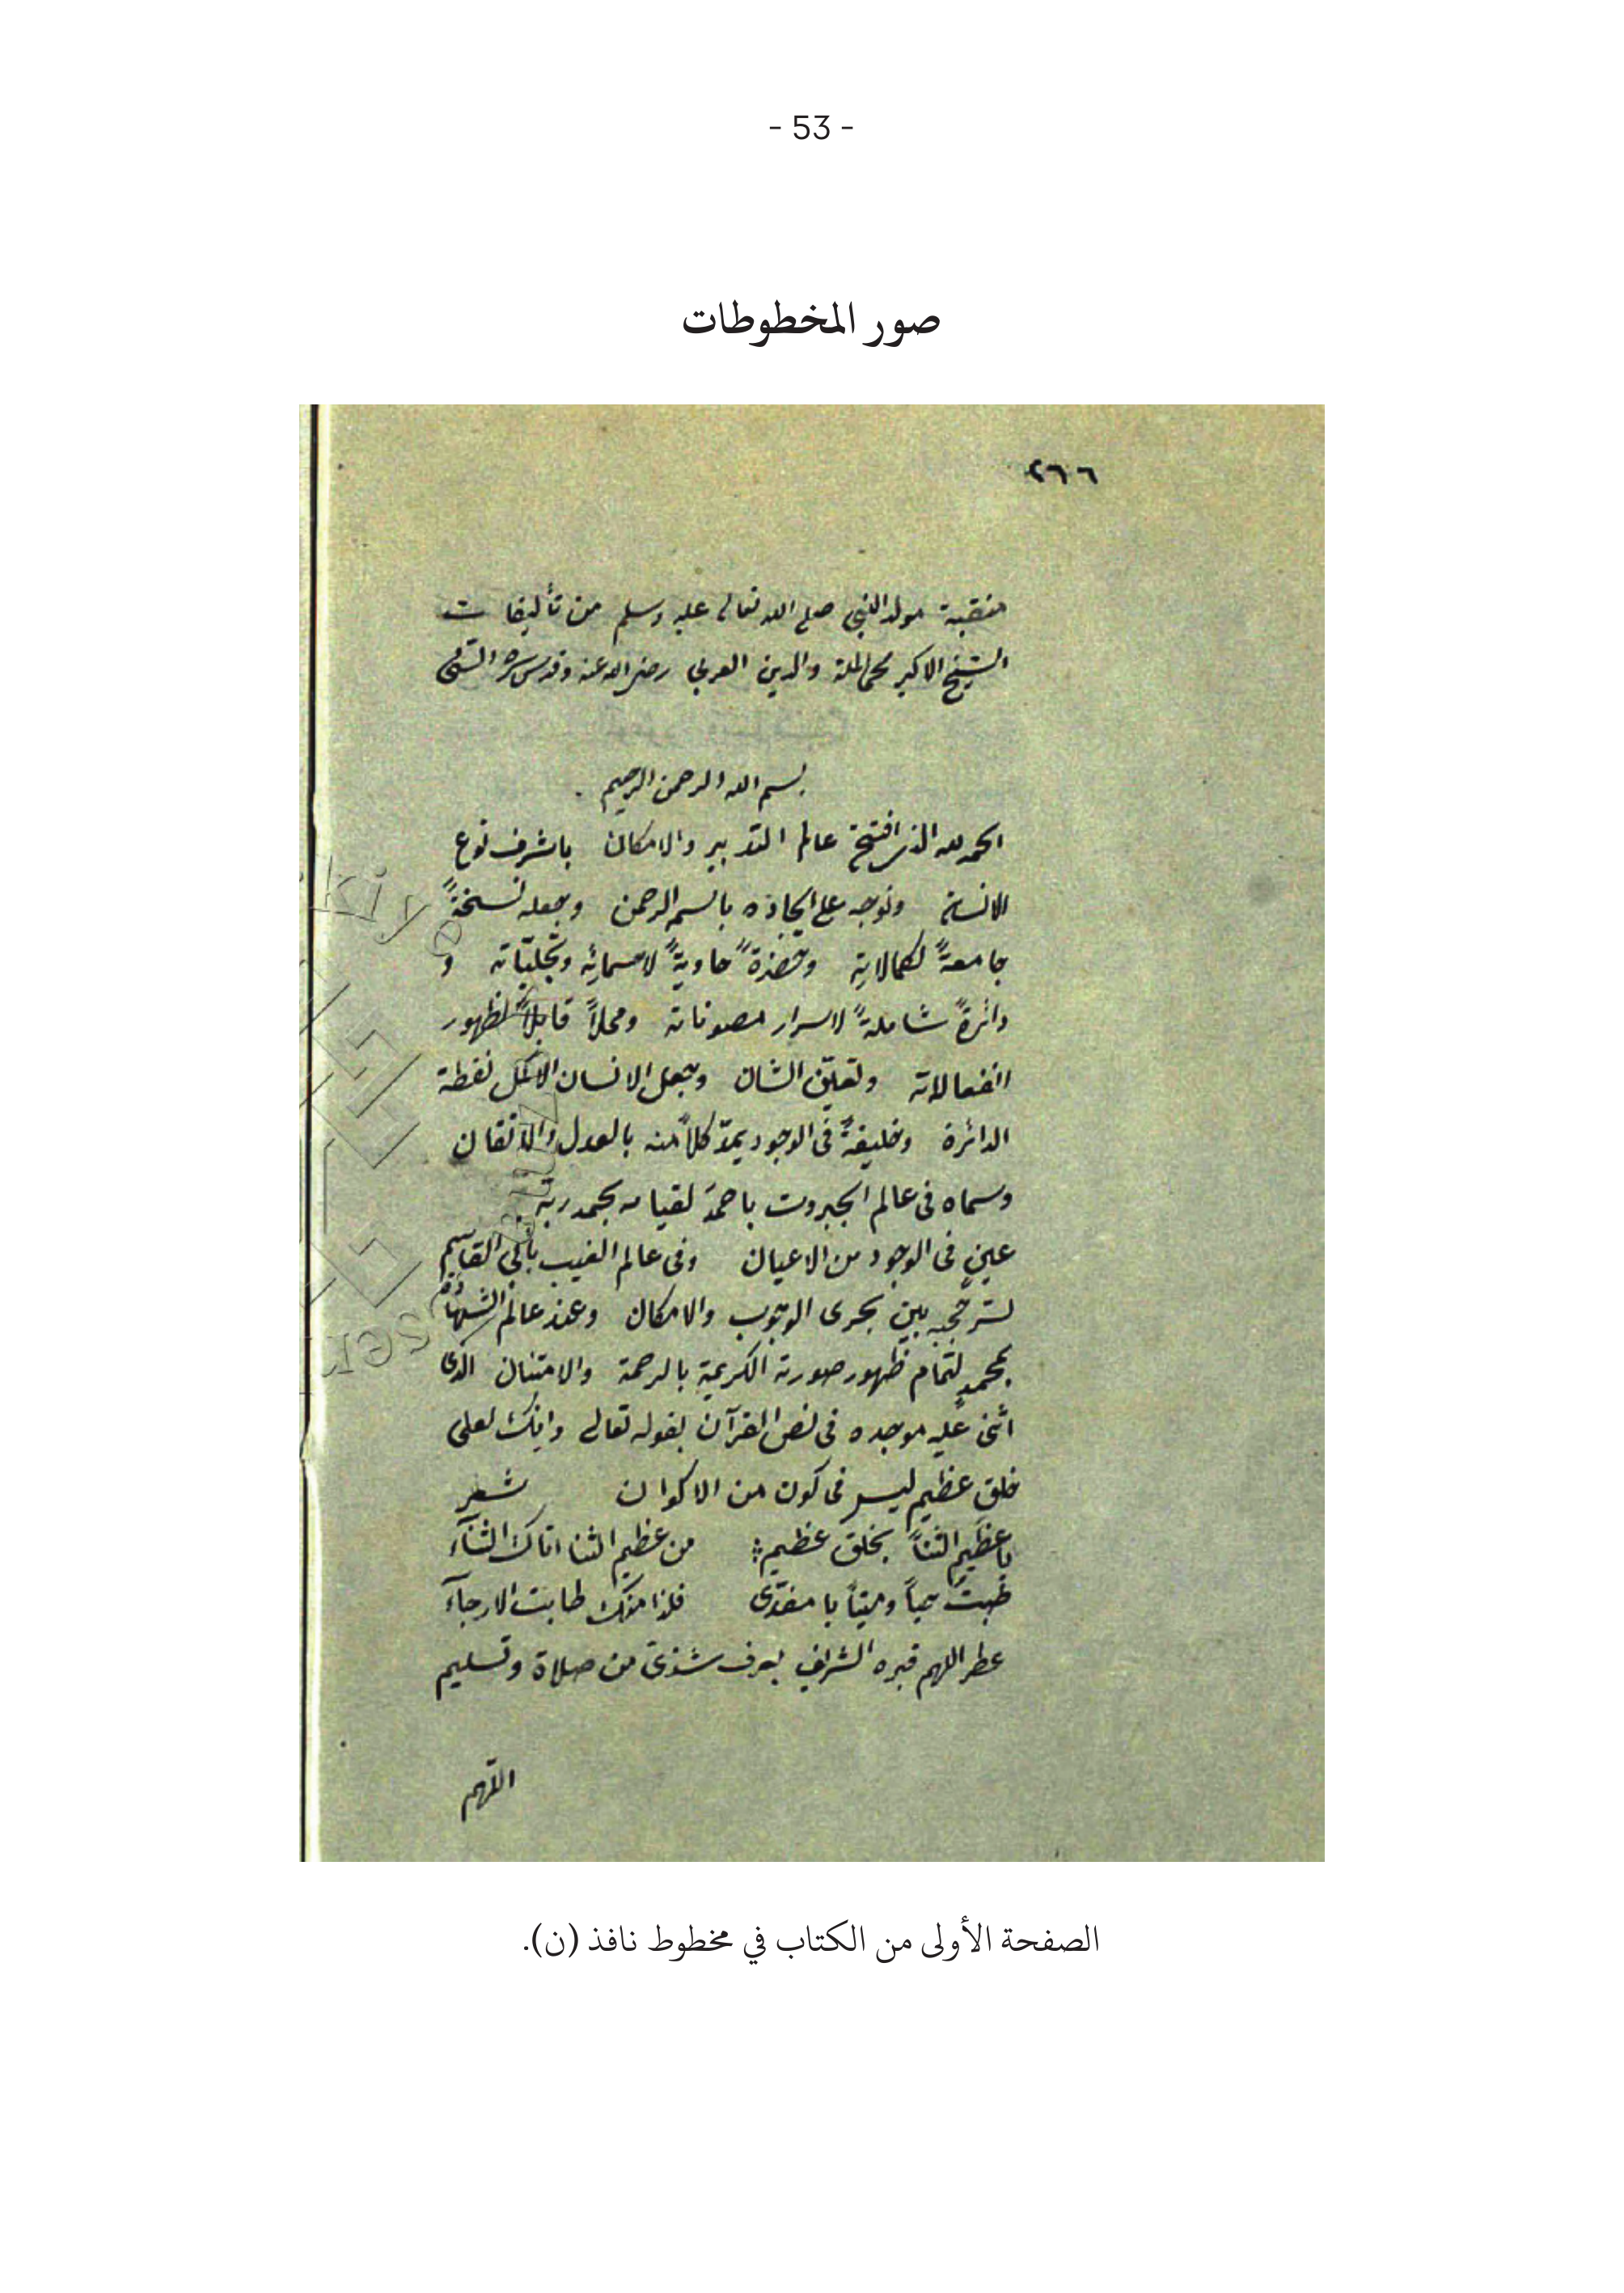 - 53 -
صور المخطوطات
٢٦٦
منقبة مولد النبي صلى الله تعالى عليه وسلم من تأليفات
الشيخ الاكبر محي الملة والدين العربي رضى الله عنه وقدس سره
بسم الله الرحمن الرحيم
الحمد لله الذى افتتح عالم التدبير والامكان باشرف نوع
الانسان وتوجه على ايجاده باسم الرحمن وجعله نسخةً
جامعةً لكمالاتِه وحضرةً حاويةً لاسمائِه وتجليّاته و
دائرةً شاملةً لاسرار مصوناته ومحلاً قابلاً لظهور
انفعالاته وتعلّق الشان وجعل الانسان الاكمل نقطة
الدائرة وخليفةً فى الوجود يمدّ كلاً منه بالعدل والاتقان
وسماه فى عالم الجبروت باحمدَ لقيامه بحمد ربّه
عين فى الوجود من الاعيان وفى عالم الغيب بأبى القاسِم
بين بحرى الوجوب والامكان وعند عالم الشهادة
بمحمدٍ لتمام ظهور صورته الكريمةِ بالرحمة والامتنان الذى
اثنى عليه موجده فى نص القرآن بقوله تعالى وانك لعلى
خلق عظيم ليس فى كون من الاكوان شعر
يا عظيم الثنا بخلق عظيم من عظيم الثنا اتاك الثنآء
طبتَ حياً وميتاً يا مفدّى فلذا منك طابت الارجآء
عطر اللهم قبره الشريف بعرف شذىّ من صلاة وتسليم
اللّهم
الصفحة الأولى من الكتاب في مخطوط نافذ (ن).